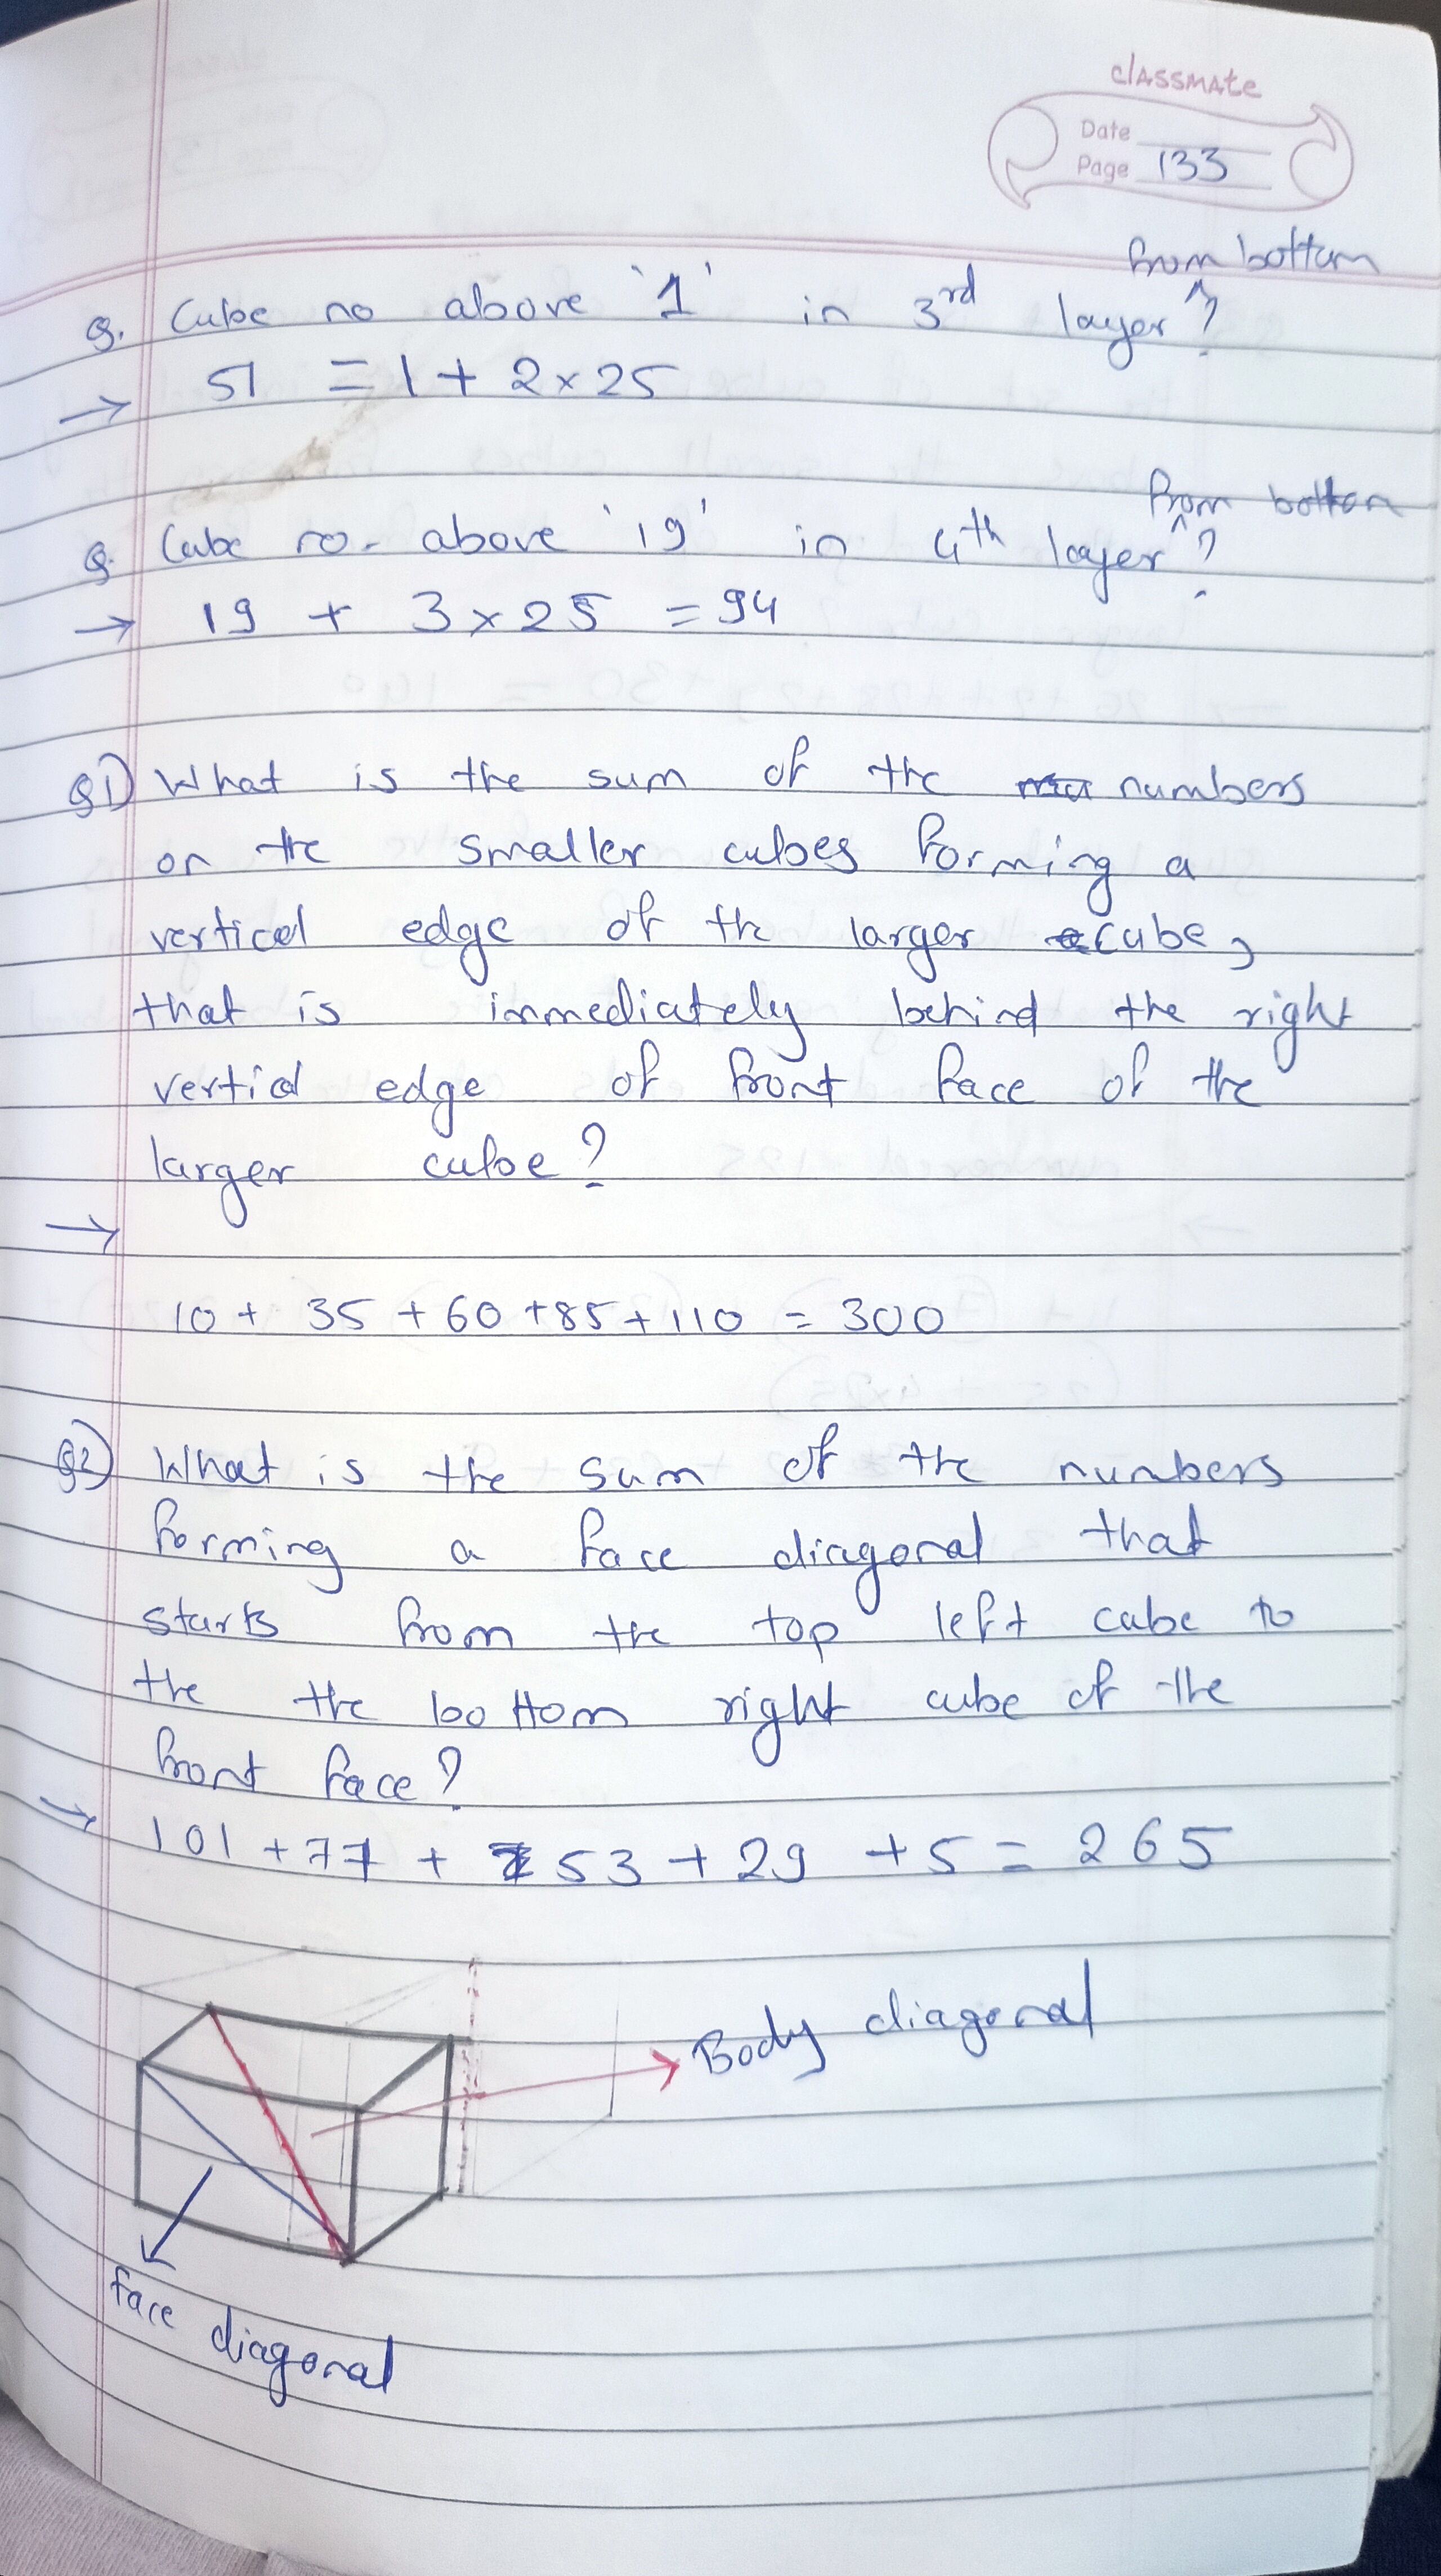 classmate
Date
Page 133
from bottom
Q. Cube no above '1' in 3rd layer ^?
→ 51 = 1 + 2 × 25
from bottom
Q. Cube no. above '19' in 4th layer ^?
→ 19 + 3 × 25 = 94
Q1) What is the sum of the numbers
on the smaller cubes forming a
vertical edge of the larger cube,
that is immediately behind the right
vertical edge of front face of the
larger cube?
→
10 + 35 + 60 + 85 + 110 = 300
Q2) What is the sum of the numbers
forming a face diagonal that
starts from the top left cube to
the the bottom right cube of the
front face?
→ 101 + 77 + 53 + 29 + 5 = 265
Body diagonal
face diagonal